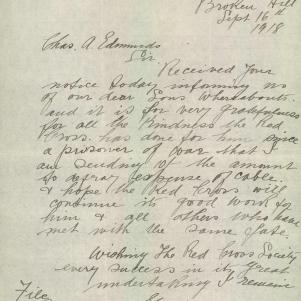 Broken Hill
Sept 16th
1918
Chas. A Edmunds
Sir
Received Your
notice today informing us
of our dear Sons whereabouts.
and it is for very gratefulness
for all the Kindness the Red
Cross has done for him since
a prisoner of war that I
am sending of the amount
to defray expense of cable.
& hope the Red Cross will
continue its good work for
him & all others who have
met with the same fate.
Wishing The Red Cross Society
every success in its great
undertaking I remain
File